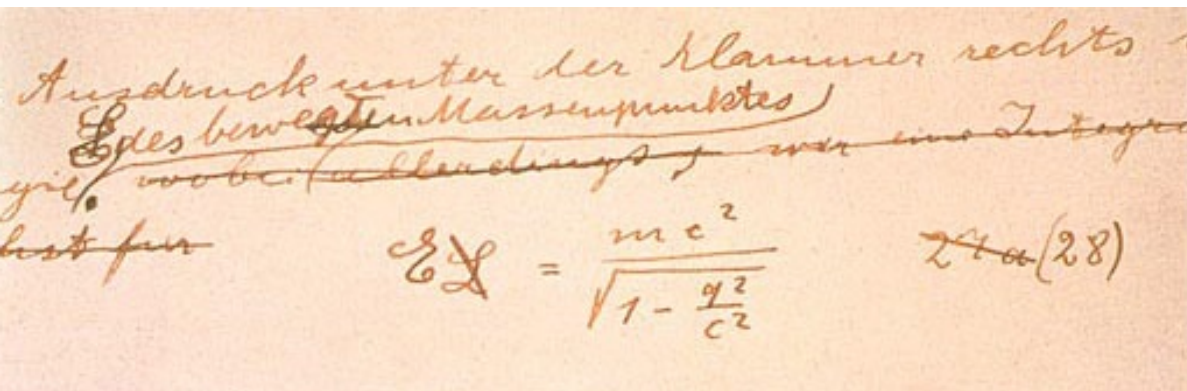 Ausdruck unter der Klammer rechts
E des bewegten Massenpunktes
gie. wobei (allerdings, wir eine Integra
hst für
E L = mc² / √(1 - q²/c²) 27a (28)